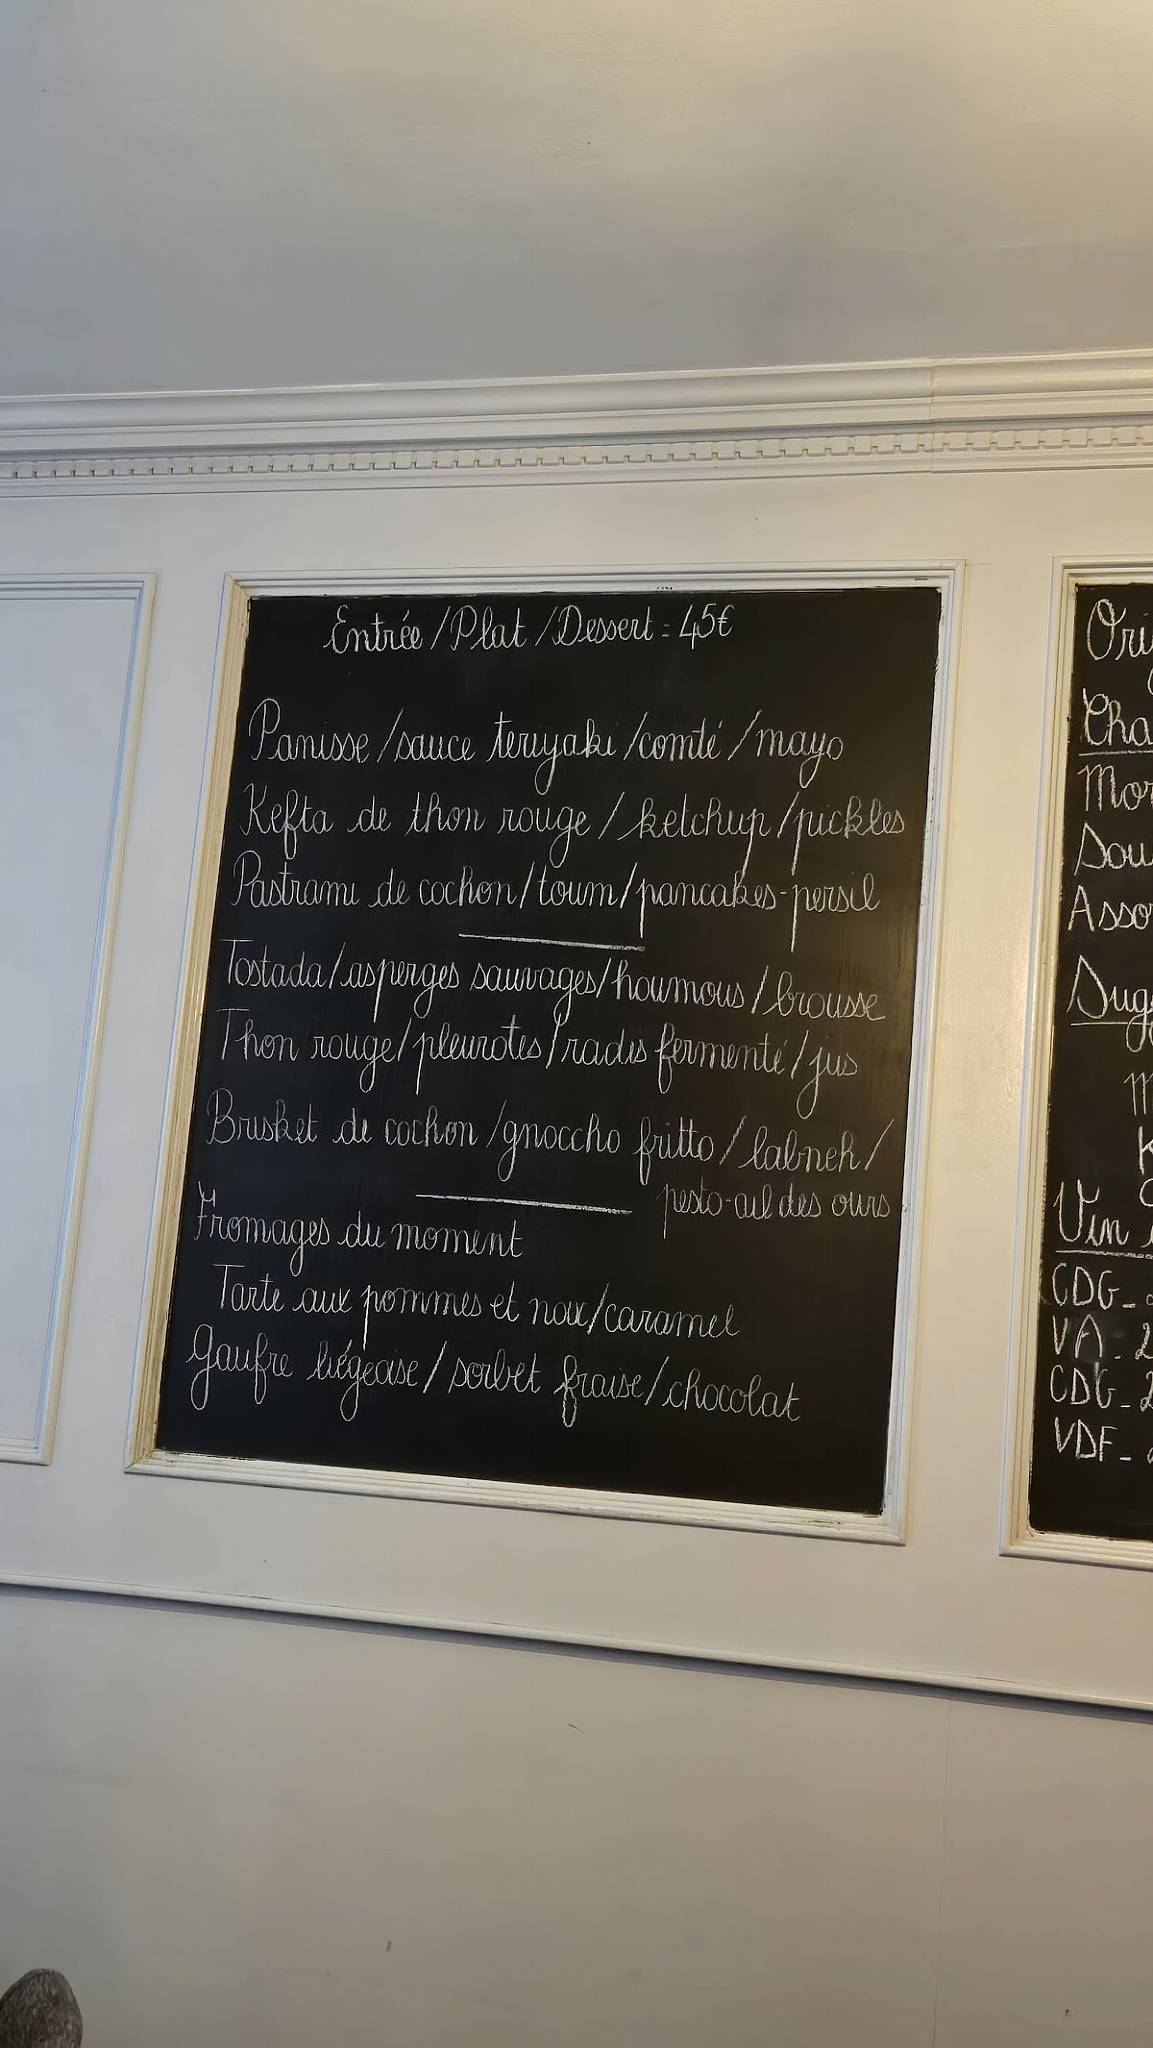 Entrée/Plat/Dessert = 45€
Panisse/sauce teriyaki/comté/mayo
Kefta de thon rouge/ketchup/pickles
Pastrami de cochon/toum/pancakes-persil
Tostada/asperges sauvages/houmous/brousse
Thon rouge/pleurotes/radis fermenté/jus
Brisket de cochon/gnoccho fritto/labneh/
pesto-ail des ours
Fromages du moment
Tarte aux pommes et noix/caramel
Gaufre liégeoise/sorbet fraise/chocolat
Ori
Cha
Mor
Sou
Asso
Sug
M
K
Vin
CDG-
VA. 2
CDG-2
VDF-